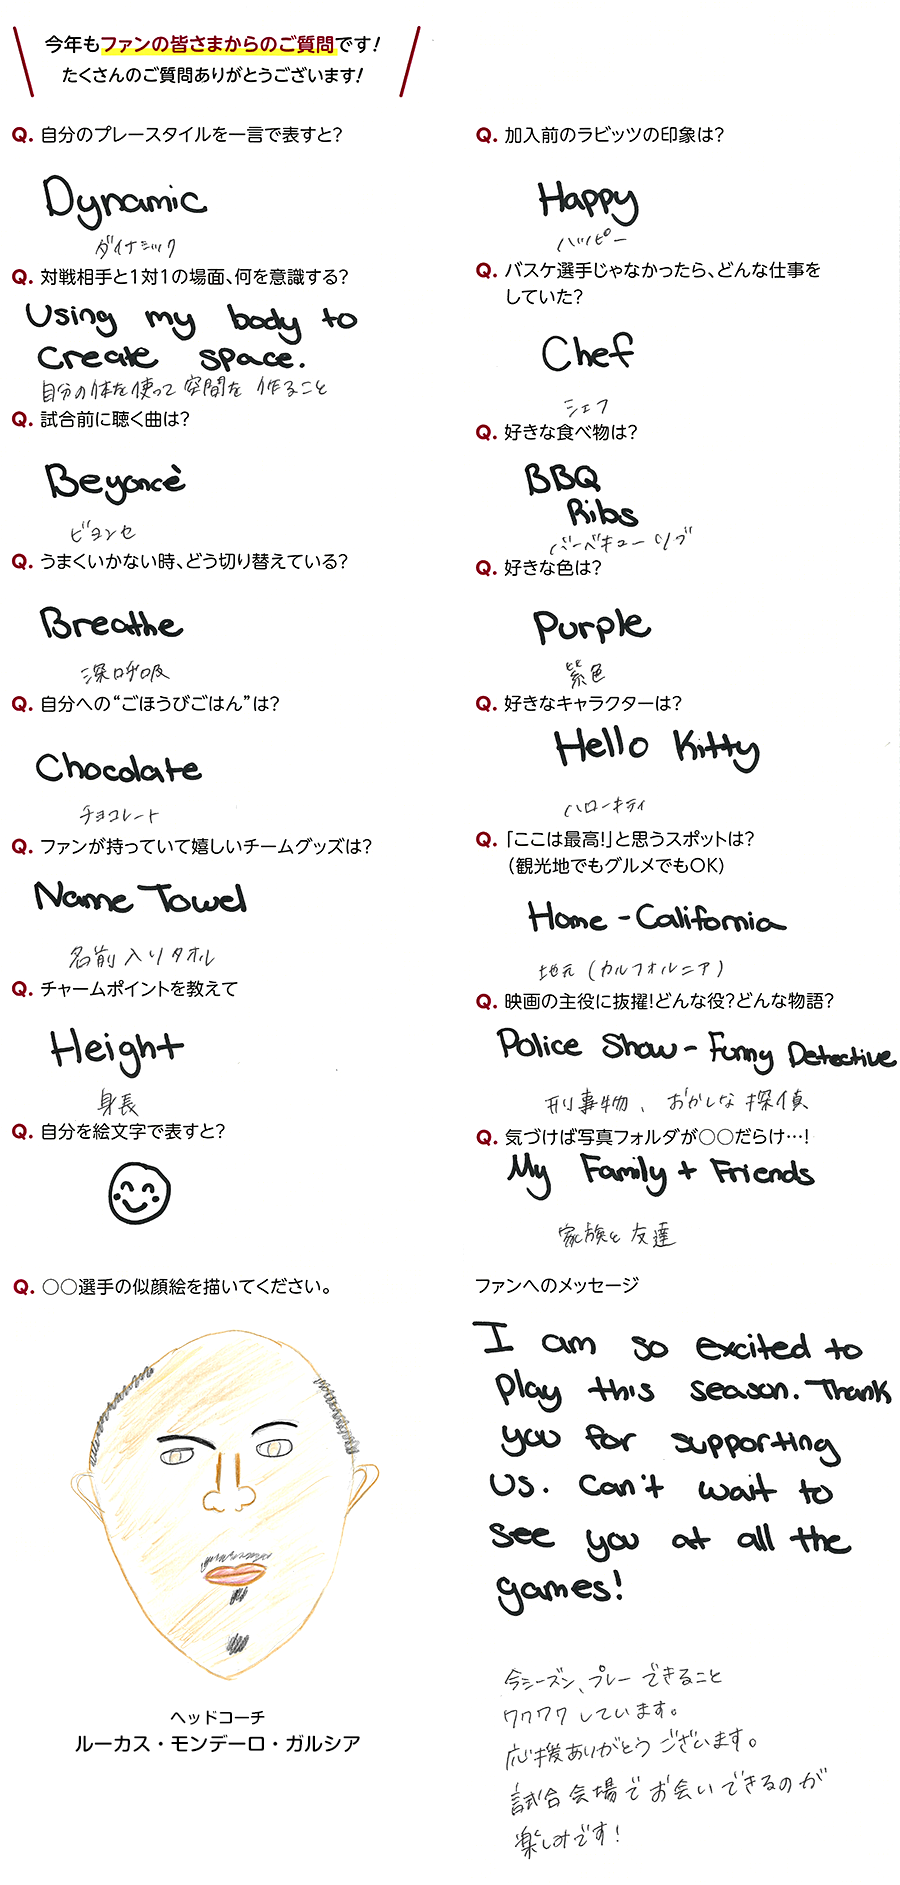 今年もファンの皆さまからのご質問です!
たくさんのご質問ありがとうございます!
Q. 自分のプレースタイルを一言で表すと?
Dynamic
ダイナミック
Q. 対戦相手と1対1の場面、何を意識する?
Using my body to
create space.
自分の体を使って空間を作ること
Q. 試合前に聴く曲は?
Beyoncè
ビヨンセ
Q. うまくいかない時、どう切り替えている?
Breathe
深呼吸
Q. 自分への“ごほうびごはん”は?
Chocolate
チョコレート
Q. ファンが持っていて嬉しいチームグッズは?
Name Towel
名前入りタオル
Q. チャームポイントを教えて
Height
身長
Q. 自分を絵文字で表すと?
Q. 〇〇選手の似顔絵を描いてください。
ヘッドコーチ
ルーカス・モンデーロ・ガルシア
Q. 加入前のラビッツの印象は?
Happy
ハッピー
Q. バスケ選手じゃなかったら、どんな仕事を
していた?
Chef
シェフ
Q. 好きな食べ物は?
BBQ
Ribs
バーベキューリブ
Q. 好きな色は?
Purple
紫色
Q. 好きなキャラクターは?
Hello Kitty
ハローキティ
Q. 「ここは最高!」と思うスポットは?
(観光地でもグルメでもOK)
Home - California
地元 (カルフォルニア)
Q. 映画の主役に抜擢!どんな役?どんな物語?
Police Show - Funny Detective
刑事物、おかしな探偵
Q. 気づけば写真フォルダが〇〇だらけ…!
My Family + Friends
家族と友達
ファンへのメッセージ
I am so excited to
play this season. Thank
you for supporting
us. Can't wait to
see you at all the
games!
今シーズン、プレーできること
ワクワクしています。
応援ありがとうございます。
試合会場でお会いできるのが
楽しみです!